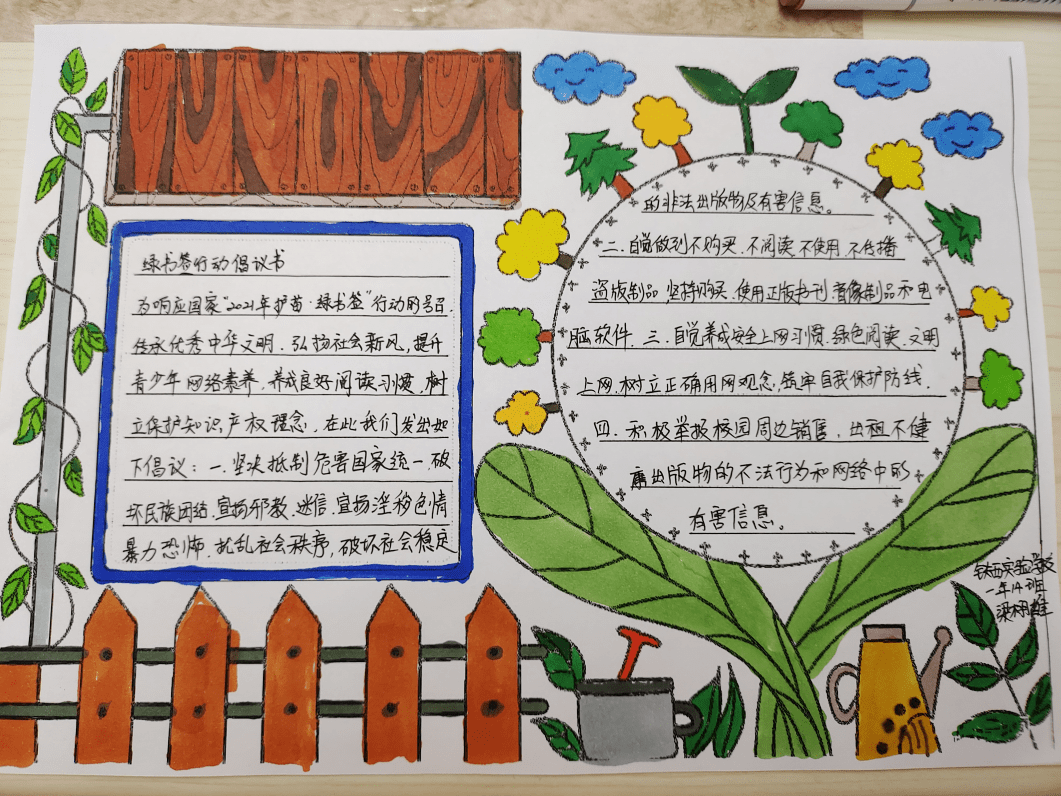 绿书签行动倡议书
为响应国家“2021年护苗·绿书签”行动的号召,
传承优秀中华文明、弘扬社会新风,提升
青少年网络素养,养成良好阅读习惯,树
立保护知识产权理念,在此我们发出如
下倡议:一.坚决抵制危害国家统一、破
坏民族团结、宣扬邪教、迷信、宣扬淫秽色情
暴力恐怖、扰乱社会秩序,破坏社会稳定
的非法出版物及有害信息。
二.自觉做到不购买、不阅读、不使用、不传播
盗版制品,坚持购买、使用正版书刊、音像制品和电
脑软件.三.自觉养成安全上网习惯、绿色阅读、文明
上网,树立正确用网观念,筑牢自我保护防线.
四.积极举报校园周边销售、出租不健
康出版物的不法行为和网络中的
有害信息。
铁西实验学校
一年14班